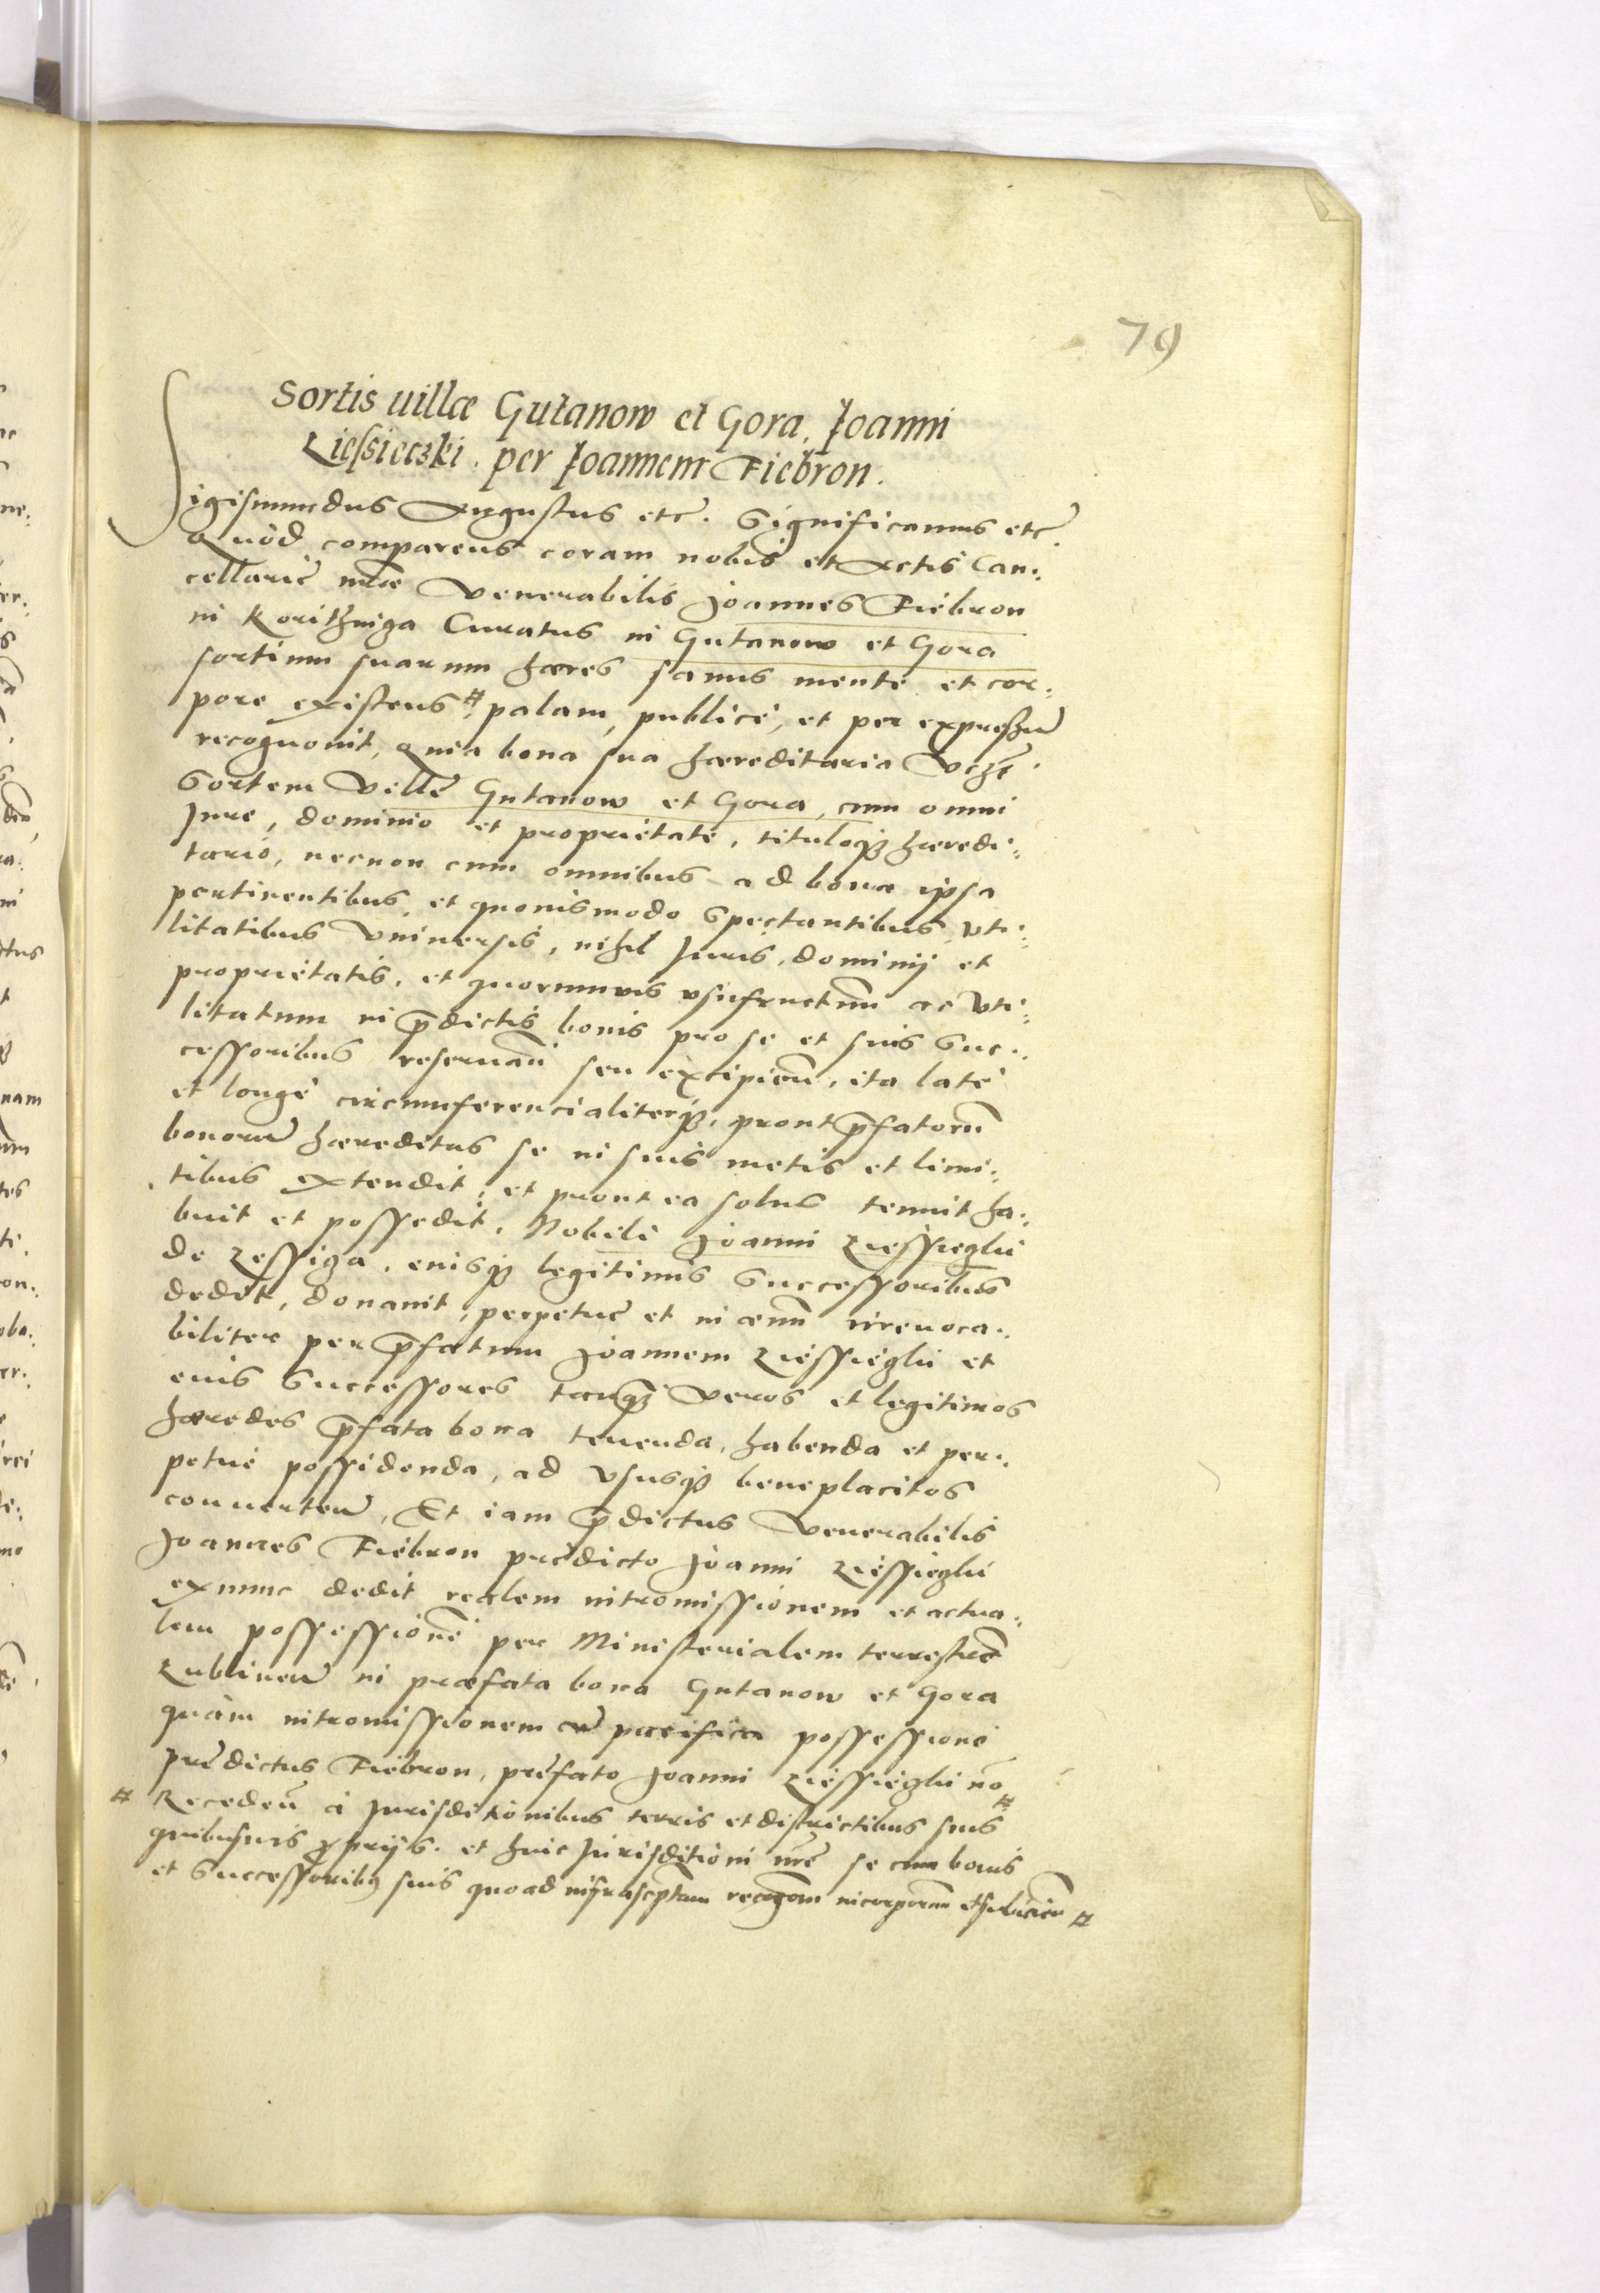 79
Sortis uillæ Gutanow et Gora. Joanni
Liessieczki. per Joannem Fiebron.
Sigismundus Augustus etc. Significamus etc.
Quod comparens coram nobis et Actis Can:
cellarie nr̃æ Venerabilis Joannes Fiebron
in Korithniga Curatus in Gutanow et Gora
sortium suarum hæres sanus mente et cor:
pore existens # palam, publice, et per expressũ
recognouit, Quia bona sua hæreditaria Vcz̃t
Sortem Ville Gutanow et Gora, cum omni
Jure, dominio et proprietate, tituloq₃ hæredi:
tario, necnon cum omnibus ad bona ipsa
pertinentibus, et quouismodo Spectantibus, vti:
litatibus Vniuersis, nihil Juris, dominij et
proprietatis, et quorumuis vsufructuũ ac Vti:
litatum in p̃dictis bonis pro se et suis Suc:
cessoribus reseruañ seu excipieñ, ita late
et longe circumferencialiterq₃, prout p̃fatorũ
bonorũ hæreditas se in suis metis et limi:
tibus extendit, et prout ea solus tenuit ha:
buit et possedit, Nobili Joanni Liessieghi
de Lessiga, eiusq₃ legitimis Successoribus
dedit, donauit, perpetue et in æuũ irreuoca:
biliter per p̃fatum Joannem Liessieghi et
eius Successores tanq₃ veros et legitimos
hæredes p̃fata bona tenenda, habenda et per:
petue possidenda, ad vsusq₃ beneplacitos
conuerteñ, Et iam p̃dictus Venerabilis
Joannes Fiebron predicto Joanni Liessieghi
exnunc dedit realem intromissionem et actua:
lem possessionẽ per Ministerialem terrestrẽ
Lublineñ in præfata bona Gutanow et Gora
quam intromissionem cũ pacifica possessione
predictus Fiebron, prefato Joanni Liessieghi nõ
# Recedeñ à Jurisditionibus terris et districtibus suis #
quibusuis p̱prijs. et huic Jurisditioni nr̃e se cum bonis
et Successorib₃ suis quoad infrascptam recogõem incorporañ et subicieñ #